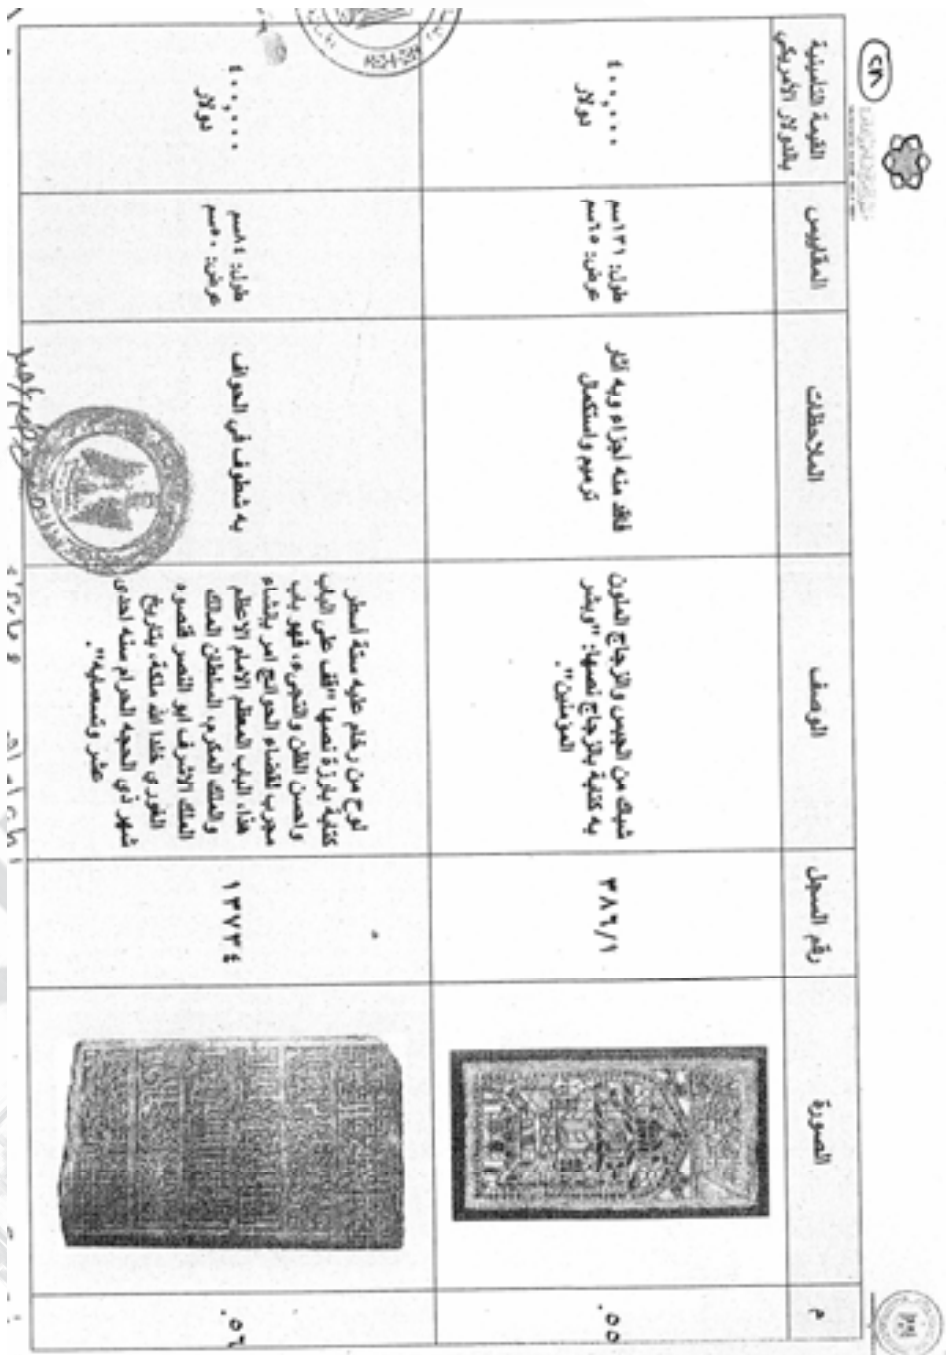 م
الصورة
رقم السجل
الوصف
الملاحظات
المقاييس
القيمة التأمينية
بالدولار الأمريكي
٥٥.
٣٨٦/١
شباك من الجبس والزجاج الملون
به كتابة بالزجاج نصها: "وبشر
المؤمنين".
فاقد منه أجزاء وبه آثار
ترميم واستكمال
طول: ١٣١سم
عرض: ٦٥سم
٤٠٠,٠٠٠
دولار
٥٦.
١٣٧٣٤
لوح من رخام عليه ستة أسطر
كتابة بارزة نصها "قف على الباب
واحسن الظن والتجىء، فهو باب
مجرب لقضاء الحوائج امر بإنشاء
هذا، الباب المعظم الامام الاعظم
والملك المكرم، السلطان المالك
الملك الاشرف ابو النصر قنصوه
الغوري خلد الله ملكه، بتاريخ
شهر ذي الحجه الحرام سنه احدى
عشر وتسعمايه".
به شطوف في الحواف
طول: ٨٤سم
عرض: ٥٠سم
٤٠٠,٠٠٠
دولار